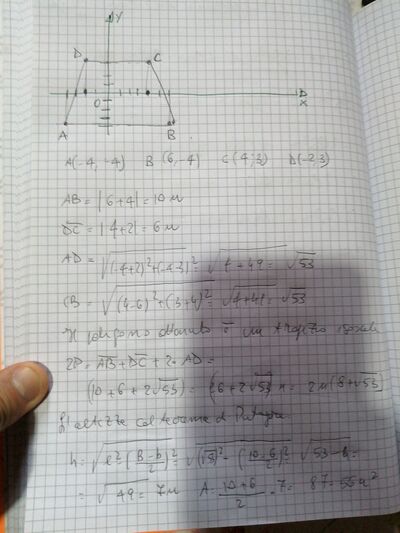 Y
D C
O
X
A B
A(-4, -4) B (6, -4) C (4; 3) D(-2, 3)
AB = |6+4| = 10 u
DC = |4+2| = 6 u
AD = √(-4+2)²+(-4-3)² = √4+49 = √53
CB = √(4-6)²+(3+4)² = √4+49 = √53
Il poligono ottenuto è un trapezio isoscele
2P = AB + DC + 2· AD =
(10 + 6 + 2√53) = (16 + 2√53 u = 2u(8+√53)
L'altezza col teorema di Pitagora
h = √l² - (B-b/2)² = √(√53)² - (10-6/2)² = √53-4 =
= √49 = 7u A = 10+6/2 · 7 = 8·7 = 56 u²